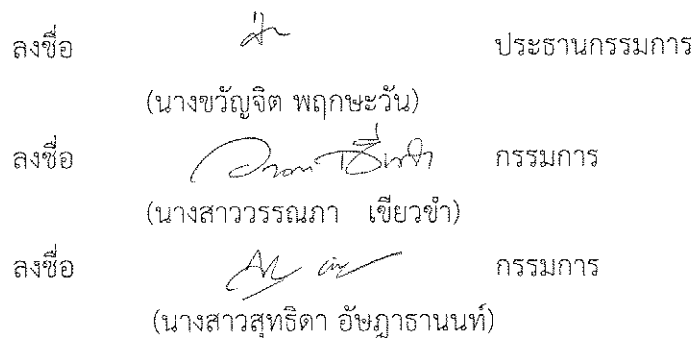 ลงชื่อ ประธานกรรมการ
(นางขวัญจิต พฤกษะวัน)
ลงชื่อ กรรมการ
(นางสาววรรณภา เขียวขำ)
ลงชื่อ กรรมการ
(นางสาวสุทธิดา อัษฎาธานนท์)